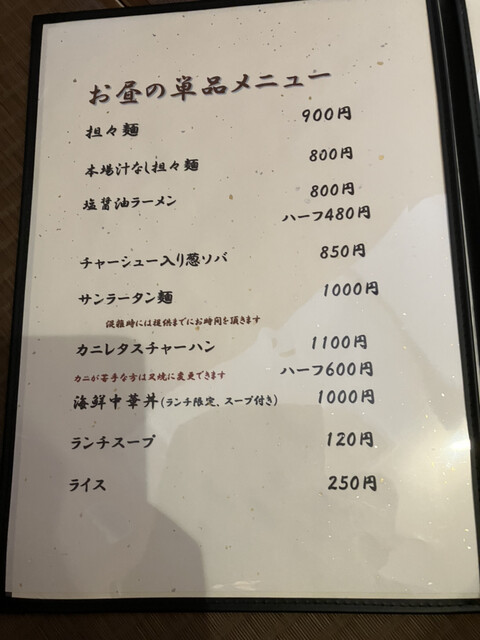 お昼の単品メニュー
担々麺 900円
本場汁なし担々麺 800円
塩醤油ラーメン 800円
ハーフ480円
チャーシュー入り葱ソバ 850円
サンラータン麺 1000円
混雑時には提供までにお時間を頂きます
カニレタスチャーハン 1100円
ハーフ600円
カニが苦手な方は叉焼に変更できます
海鮮中華丼(ランチ限定、スープ付き) 1000円
ランチスープ 120円
ライス 250円